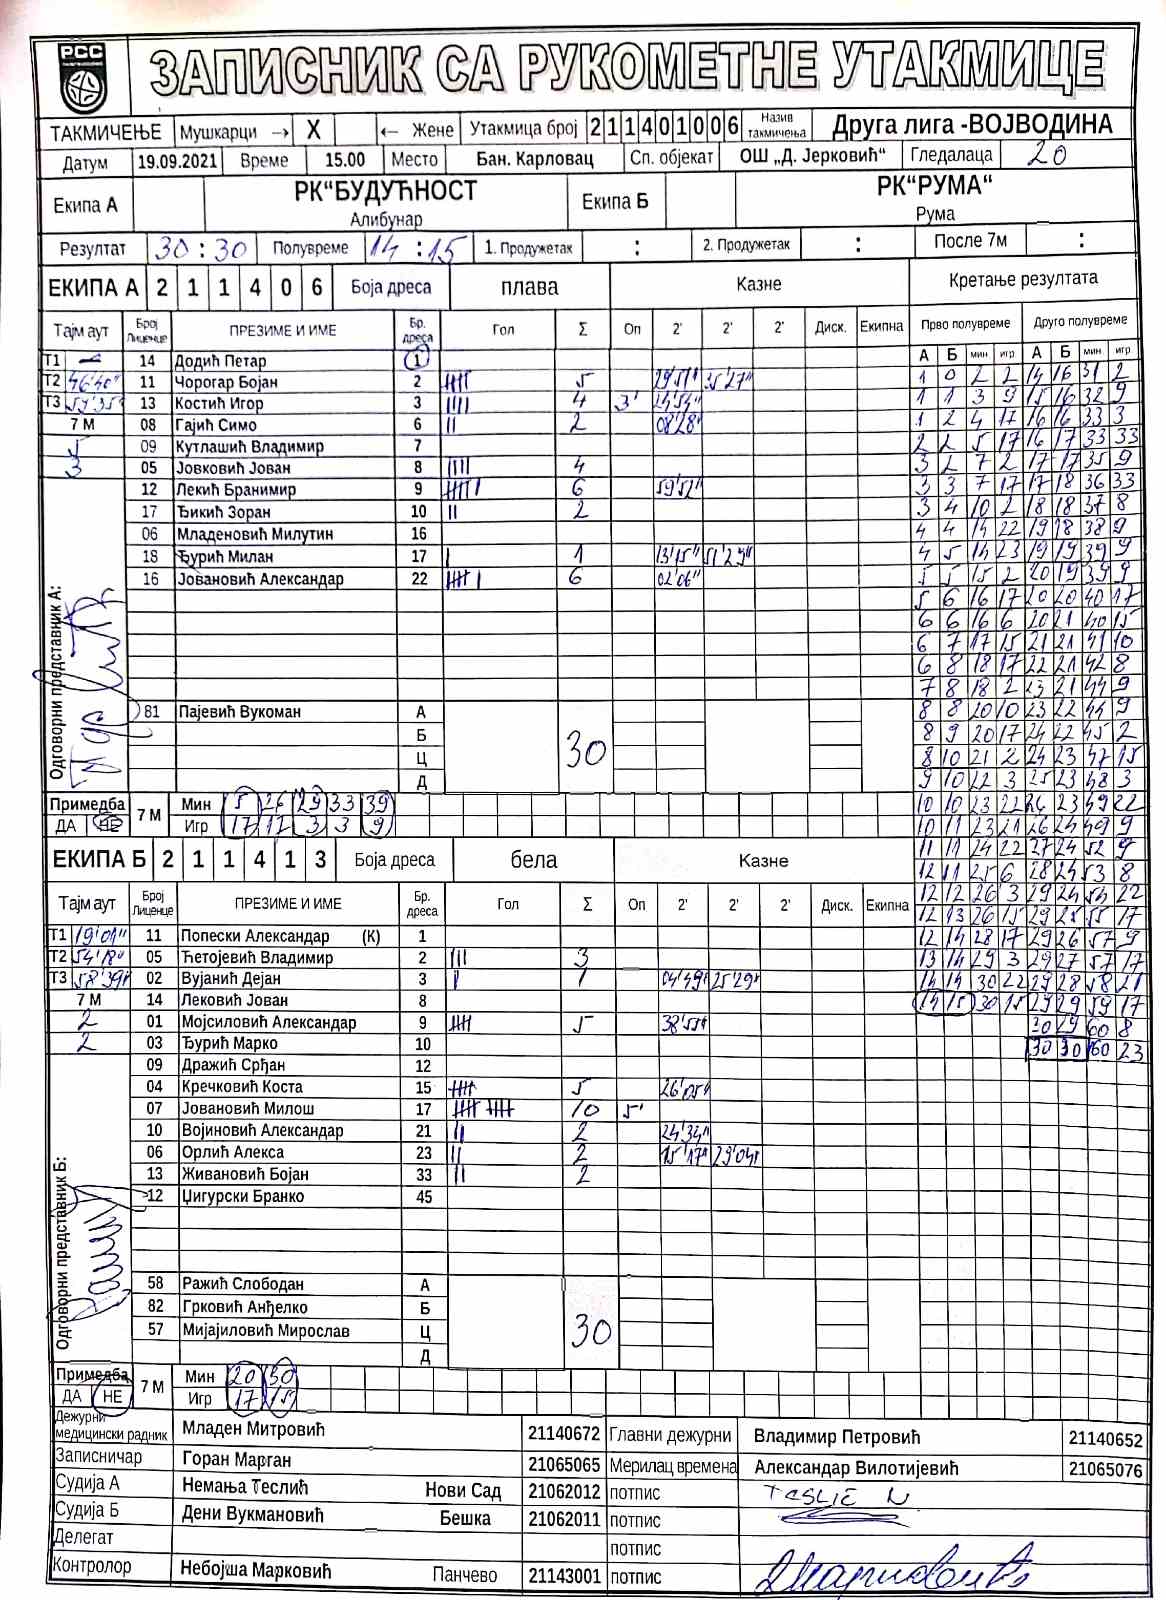 РСС
ЗАПИСНИК СА РУКОМЕТНЕ УТАКМИЦЕ
ТАКМИЧЕЊЕ Мушкарци → X ← Жене Утакмица број 211401006 Назив такмичења Друга лига -ВОЈВОДИНА
Датум 19.09.2021 Време 15.00 Место Бан. Карловац Сп. објекат ОШ „Д. Јерковић“ Гледалаца 20
Екипа А РК“БУДУЋНОСТ Алибунар Екипа Б РК“РУМА“ Рума
Резултат 30:30 Полувреме 14:15 1. Продужетак : 2. Продужетак : После 7м :
ЕКИПА А 2 1 1 4 0 6 Боја дреса плава Казне Кретање резултата
Тајм аут Број Лиценце ПРЕЗИМЕ И ИМЕ Бр. дреса Гол Σ Оп 2' 2' 2' Диск. Екипна Прво полувреме Друго полувреме
А Б мин игр А Б мин игр
Т1 14 Додић Петар 1
1 0 2 2 14 16 31 2
Т2 46'40" 11 Чорогар Бојан 2 5 29'51" 35'27"
1 1 3 9 15 16 32 9
Т3 59'35" 13 Костић Игор 3 4 3' 24'54"
1 2 4 17 16 16 33 3
7 М 08 Гајић Симо 6 2 08'28"
2 2 5 17 16 17 33 33
5 09 Кутлашић Владимир 7
3 2 7 2 17 17 35 9
3 05 Јовковић Јован 8 4
3 3 7 17 17 18 36 33
12 Лекић Бранимир 9 6 59'52"
3 4 10 2 18 18 37 8
17 Ђикић Зоран 10 2
4 4 14 22 19 18 38 9
06 Младеновић Милутин 16
4 5 14 23 19 19 39 9
18 Ђурић Милан 17 1 13'15" 51'29"
5 5 15 2 20 19 39 9
16 Јовановић Александар 22 6 02'06"
5 6 16 17 20 20 40 17
6 6 16 6 20 21 40 15
6 7 17 15 21 21 41 10
6 8 18 17 22 21 42 8
7 8 18 2 23 21 44 9
Одговорни представник А:
81 Пајевић Вукоман А
8 8 20 10 23 22 44 9
Б 30
8 9 20 17 24 22 45 2
Ц
8 10 21 2 24 23 47 15
Д
9 10 22 3 25 23 48 3
Примедба 7 М Мин 5 26 29 33 39
10 10 23 22 26 23 49 22
ДА НЕ Игр 17 12 3 3 9
10 11 23 21 26 24 49 9
ЕКИПА Б 2 1 1 4 1 3 Боја дреса бела Казне
11 11 24 22 27 24 52 9
12 11 25 6 28 24 53 8
Тајм аут Број Лиценце ПРЕЗИМЕ И ИМЕ Бр. дреса Гол Σ Оп 2' 2' 2' Диск. Екипна
12 12 26 3 29 24 54 22
12 13 26 15 29 25 55 17
Т1 19'01" 11 Попески Александар (К) 1
12 14 28 17 29 26 57 9
Т2 54'18" 05 Ћетојевић Владимир 2 3
13 14 29 3 29 27 57 17
Т3 58'39" 02 Вујанић Дејан 3 1 04'49" 25'29"
14 14 30 22 29 28 58 21
7 М 14 Лековић Јован 8
14 15 30 15 29 29 59 17
2 01 Мојсиловић Александар 9 5 38'55"
30 29 60 8
2 03 Ђурић Марко 10
30 30 60 23
09 Дражић Срђан 12
04 Кречковић Коста 15 5 26'05"
07 Јовановић Милош 17 10 5'
10 Војиновић Александар 21 2 24'34"
06 Орлић Алекса 23 2 15'17" 29'04"
13 Живановић Бојан 33 2
12 Џигурски Бранко 45
Одговорни представник Б:
58 Ражић Слободан А
82 Грковић Анђелко Б 30
57 Мијајиловић Мирослав Ц
Д
Примедба 7 М Мин 20 30
ДА НЕ Игр 17 15
Дежурни медицински радник Младен Митровић 21140672 Главни дежурни Владимир Петровић 21140652
Записничар Горан Марган 21065065 Мерилац времена Александар Вилотијевић 21065076
Судија А Немања Теслић Нови Сад 21062012 потпис TESLIĆ N
Судија Б Дени Вукмановић Бешка 21062011 потпис
Делегат потпис
Контролор Небојша Марковић Панчево 21143001 потпис